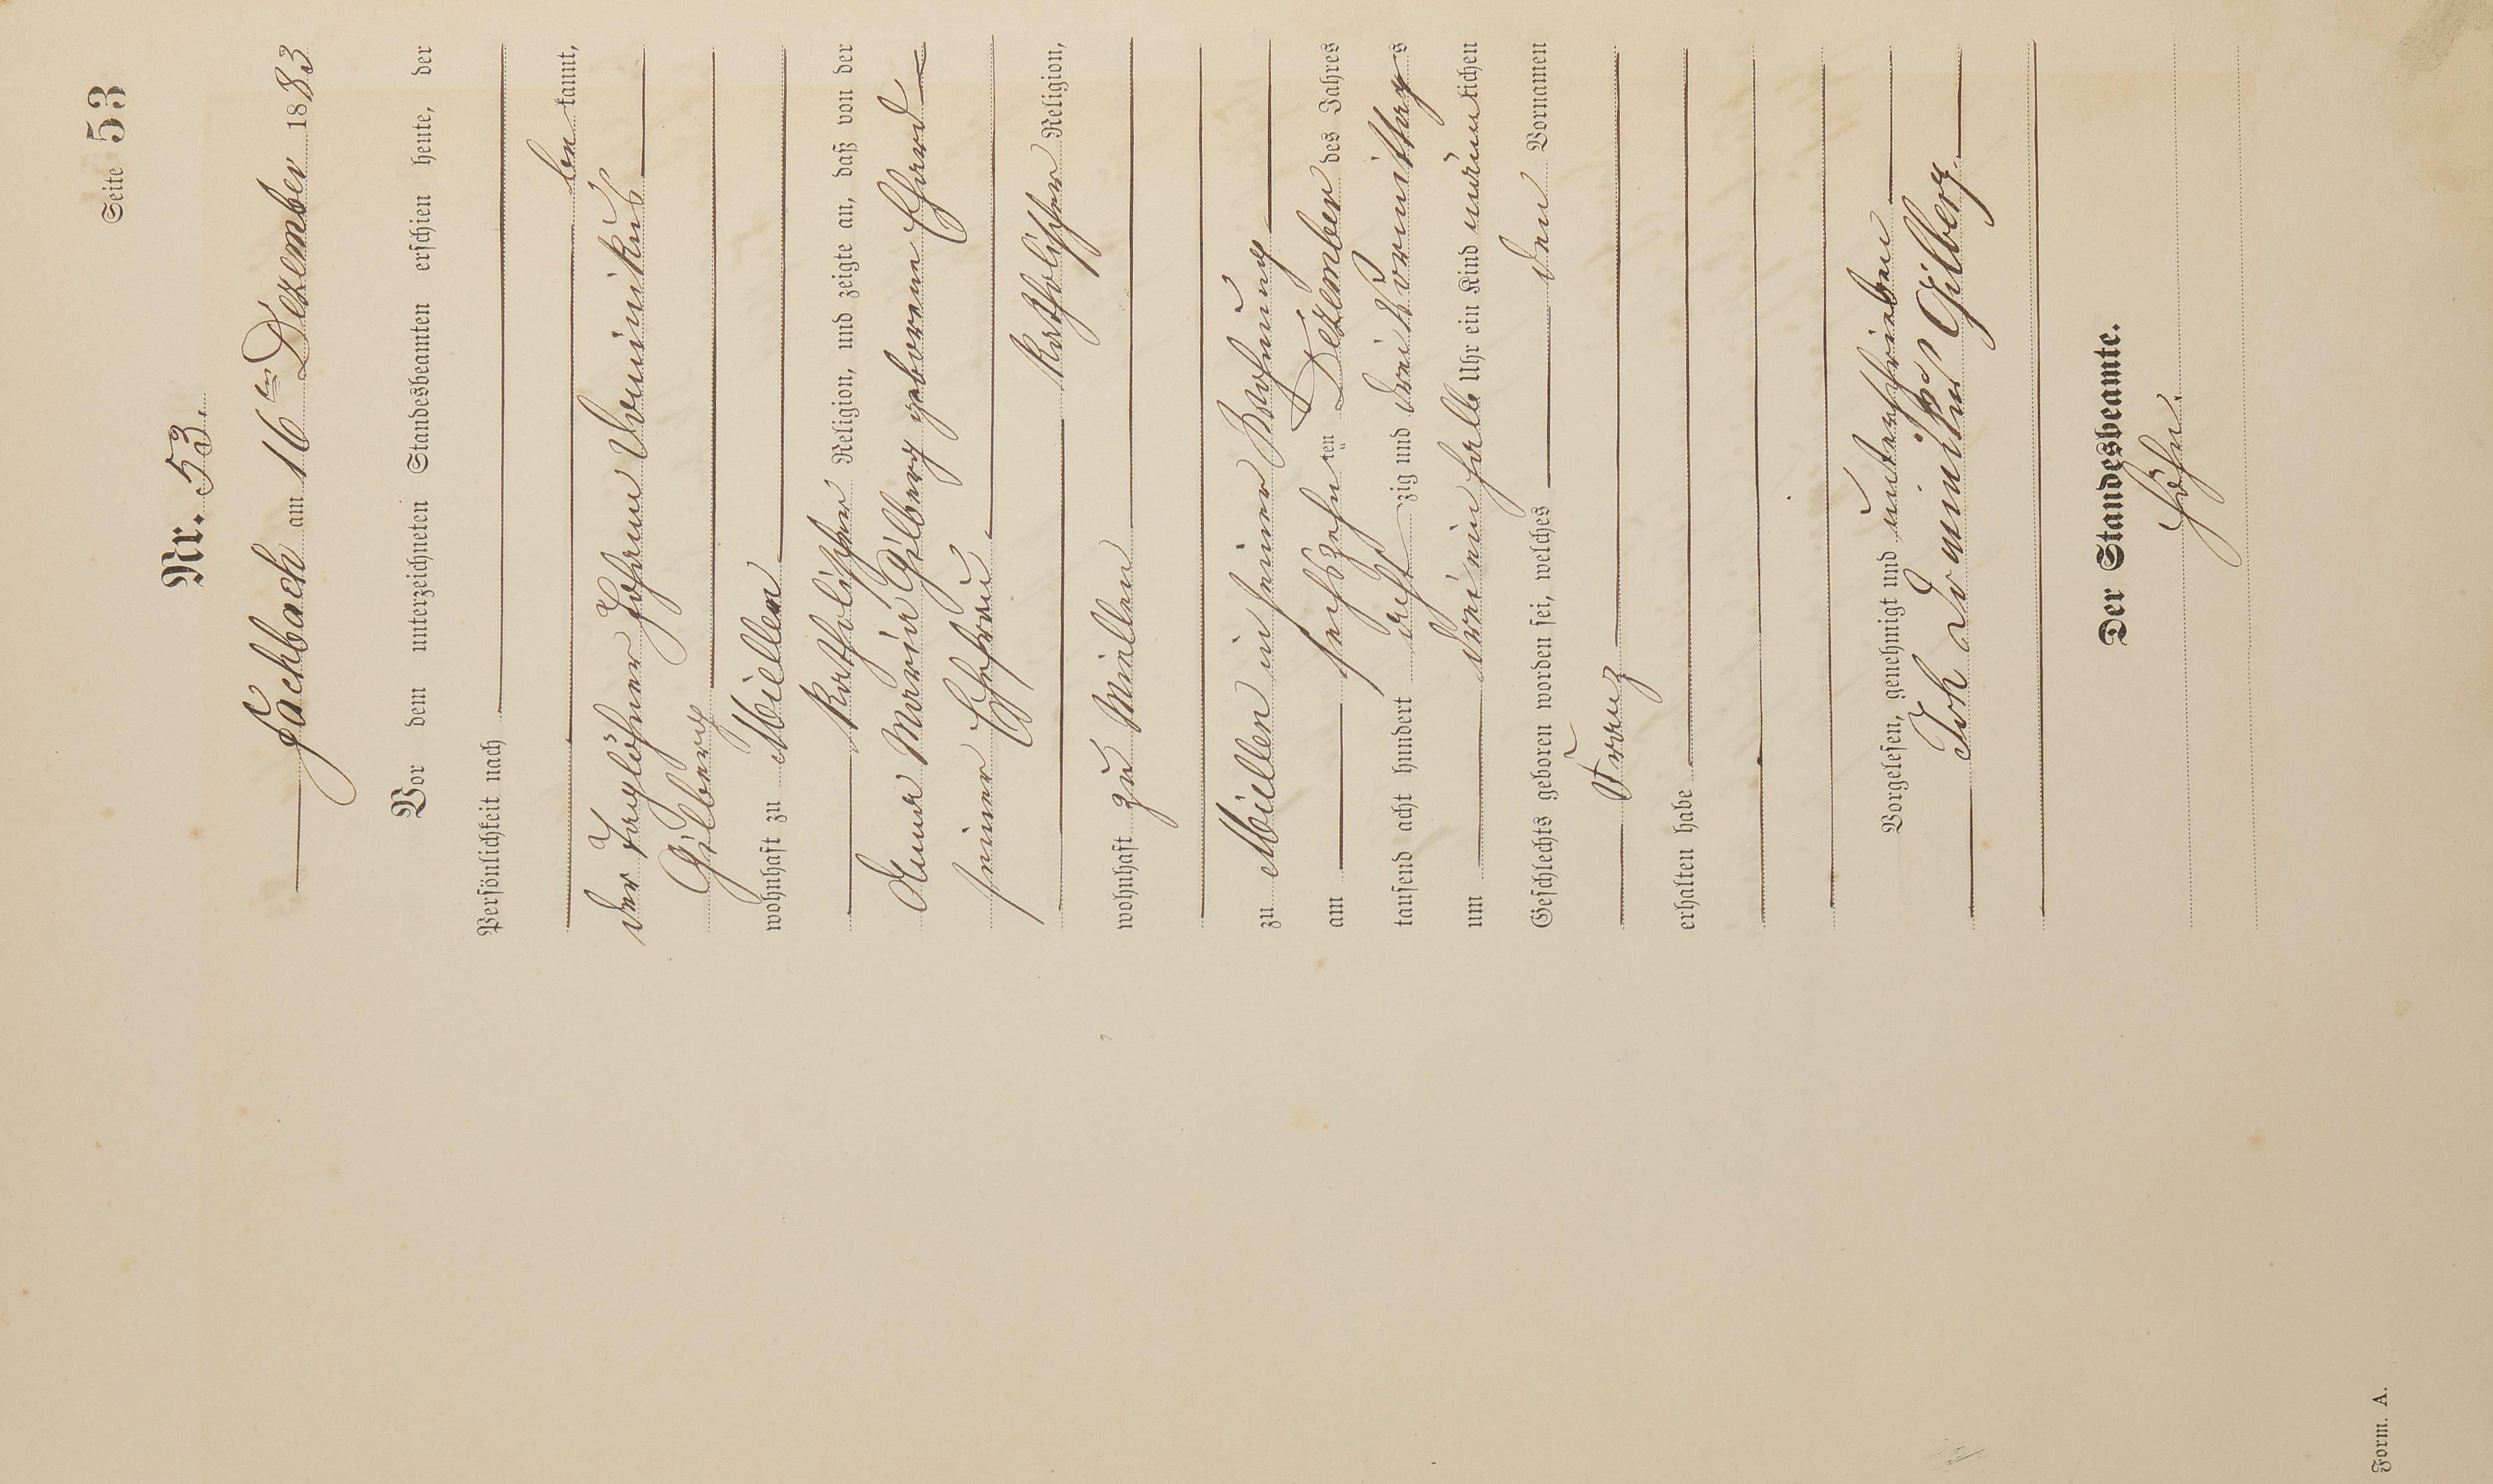 Seite 53
Nr. 53.
Fachbach am 16ten Dezember 1883
Vor dem unterzeichneten Standesbeamten erschien heute, der
Persönlichkeit nach
be kannt,
der Taglöhner Johann Dominikus
Gilberg
wohnhaft zu Miellen
katholischer Religion, und zeigte an, daß von der
Anna Maria Gilberg geborene
seiner Ehefrau
katholischer Religion,
wohnhaft zu Miellen
zu Miellen in seiner Wohnung
am sechszehn ten Dezember des Jahres
tausend acht hundert acht zig und drei Vormittags
um dreieinhalb Uhr ein Kind männlichen
Geschlechts geboren worden sei, welches den Vornamen
Franz
erhalten habe
Vorgelesen, genehmigt und unterschrieben
Joh Dominikus Gilberg.
Der Standesbeamte.
Höhn.
Form. A.